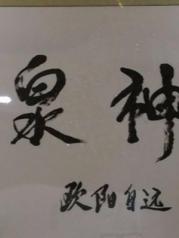 泉神
欧阳自远